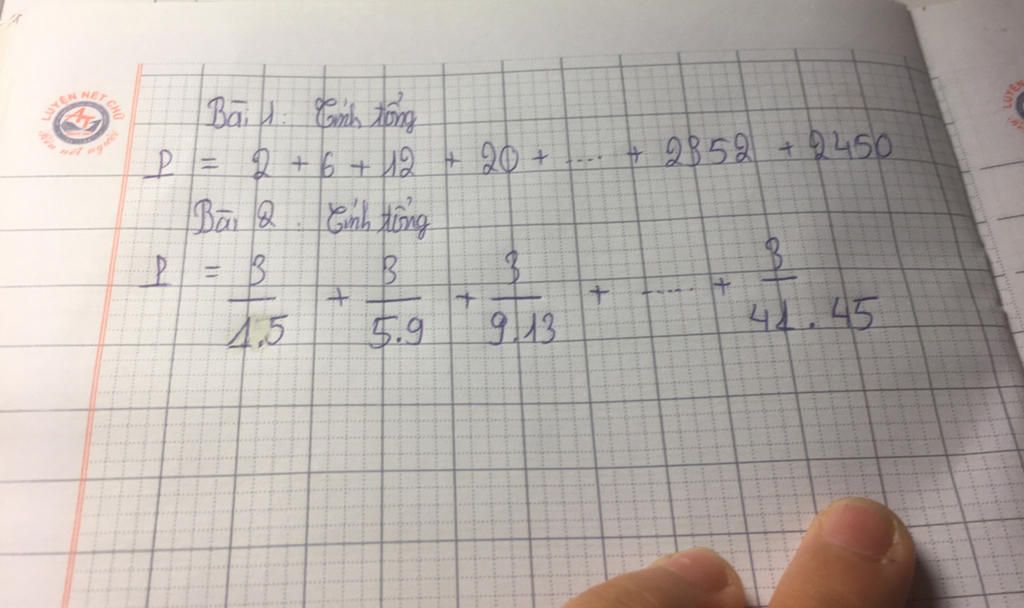 LUYỆN NÉT CHỮ
Rèn nết người
Bài 1. Tính tổng
P = 2 + 6 + 12 + 20 + .... + 2352 + 2450
Bài 2. Tính tổng
P = 3/1.5 + 3/5.9 + 3/9.13 + ..... + 3/41.45